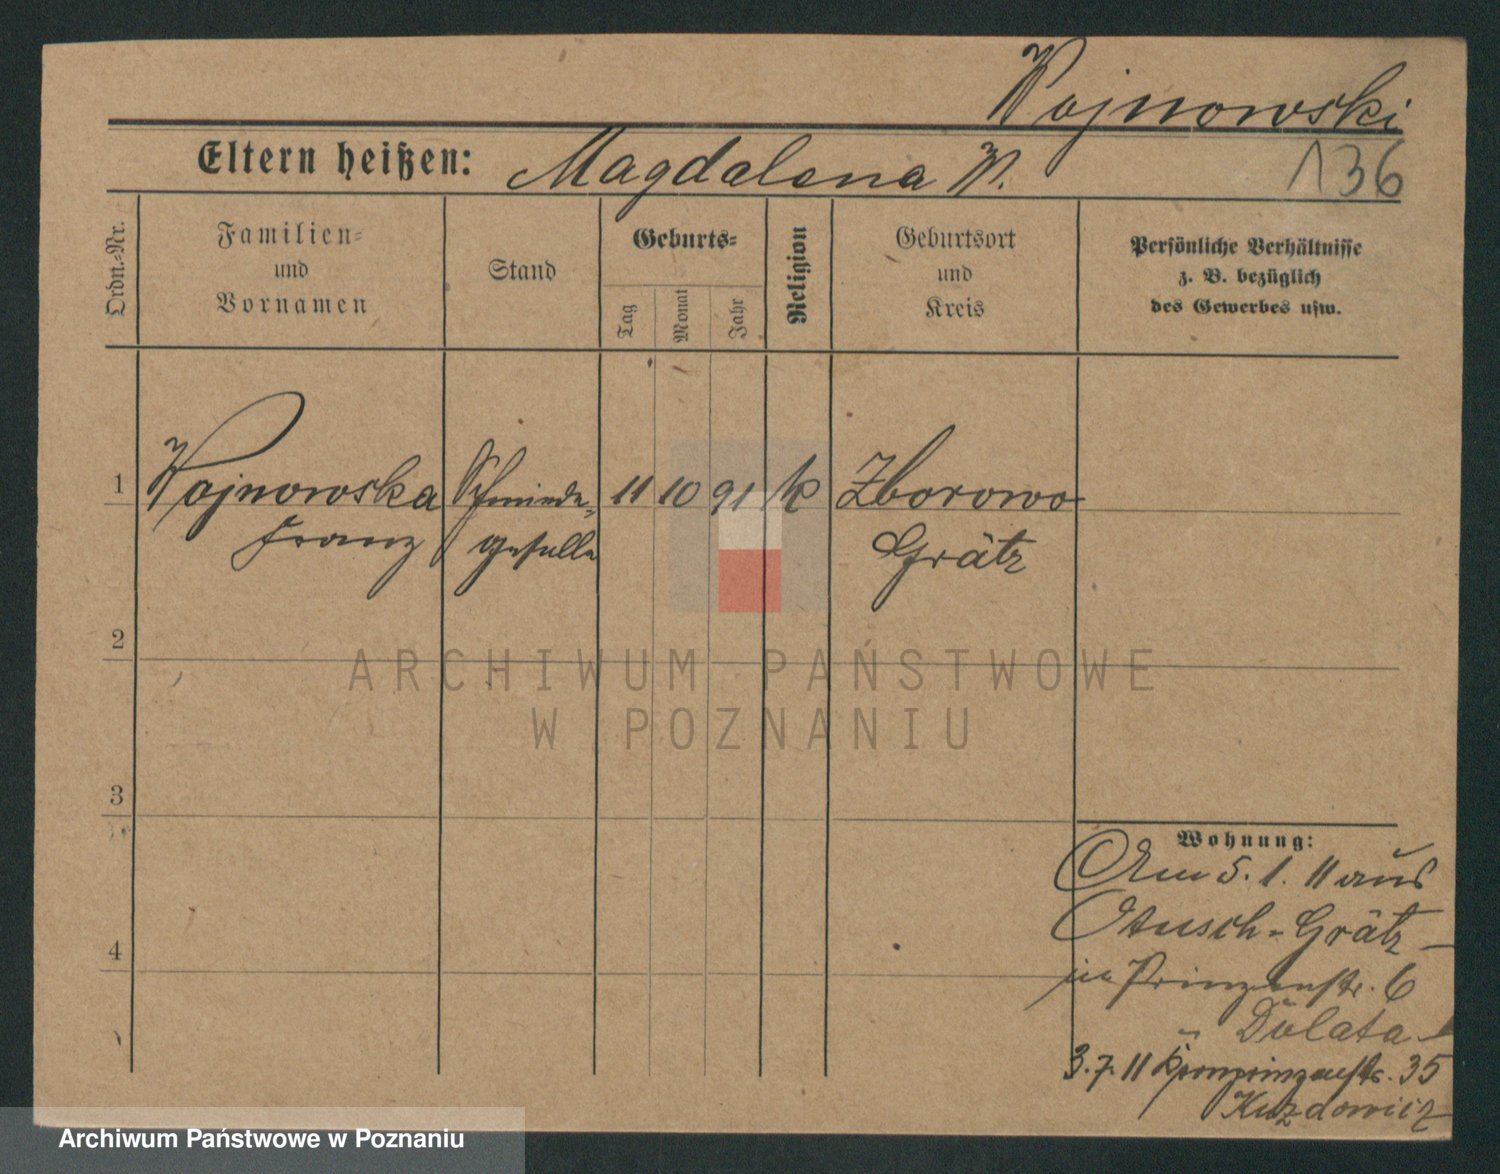 Wojnowski
Eltern heißen: Magdalena W.
136
Ordn.-Nr.
Familien-
und
Vornamen
Stand
Geburts-
Tag
Monat
Jahr
Religion
Geburtsort
und
Kreis
Persönliche Verhältnisse
z. B. bezüglich
des Gewerbes usw.
1 Wojnowska Schmiede- 11 10 91 k Zborowo
Franz geselle Grätz
2
ARCHIWUM PAŃSTWOWE
W POZNANIU
3
Wohnung:
Am 5. 1. 11 aus
Otusch-Grätz
in Prinzenstr. 6
4
Dulata
3. 7. 11 Kronprinzenstr. 35
Kuzdowicz
Archiwum Państwowe w Poznaniu